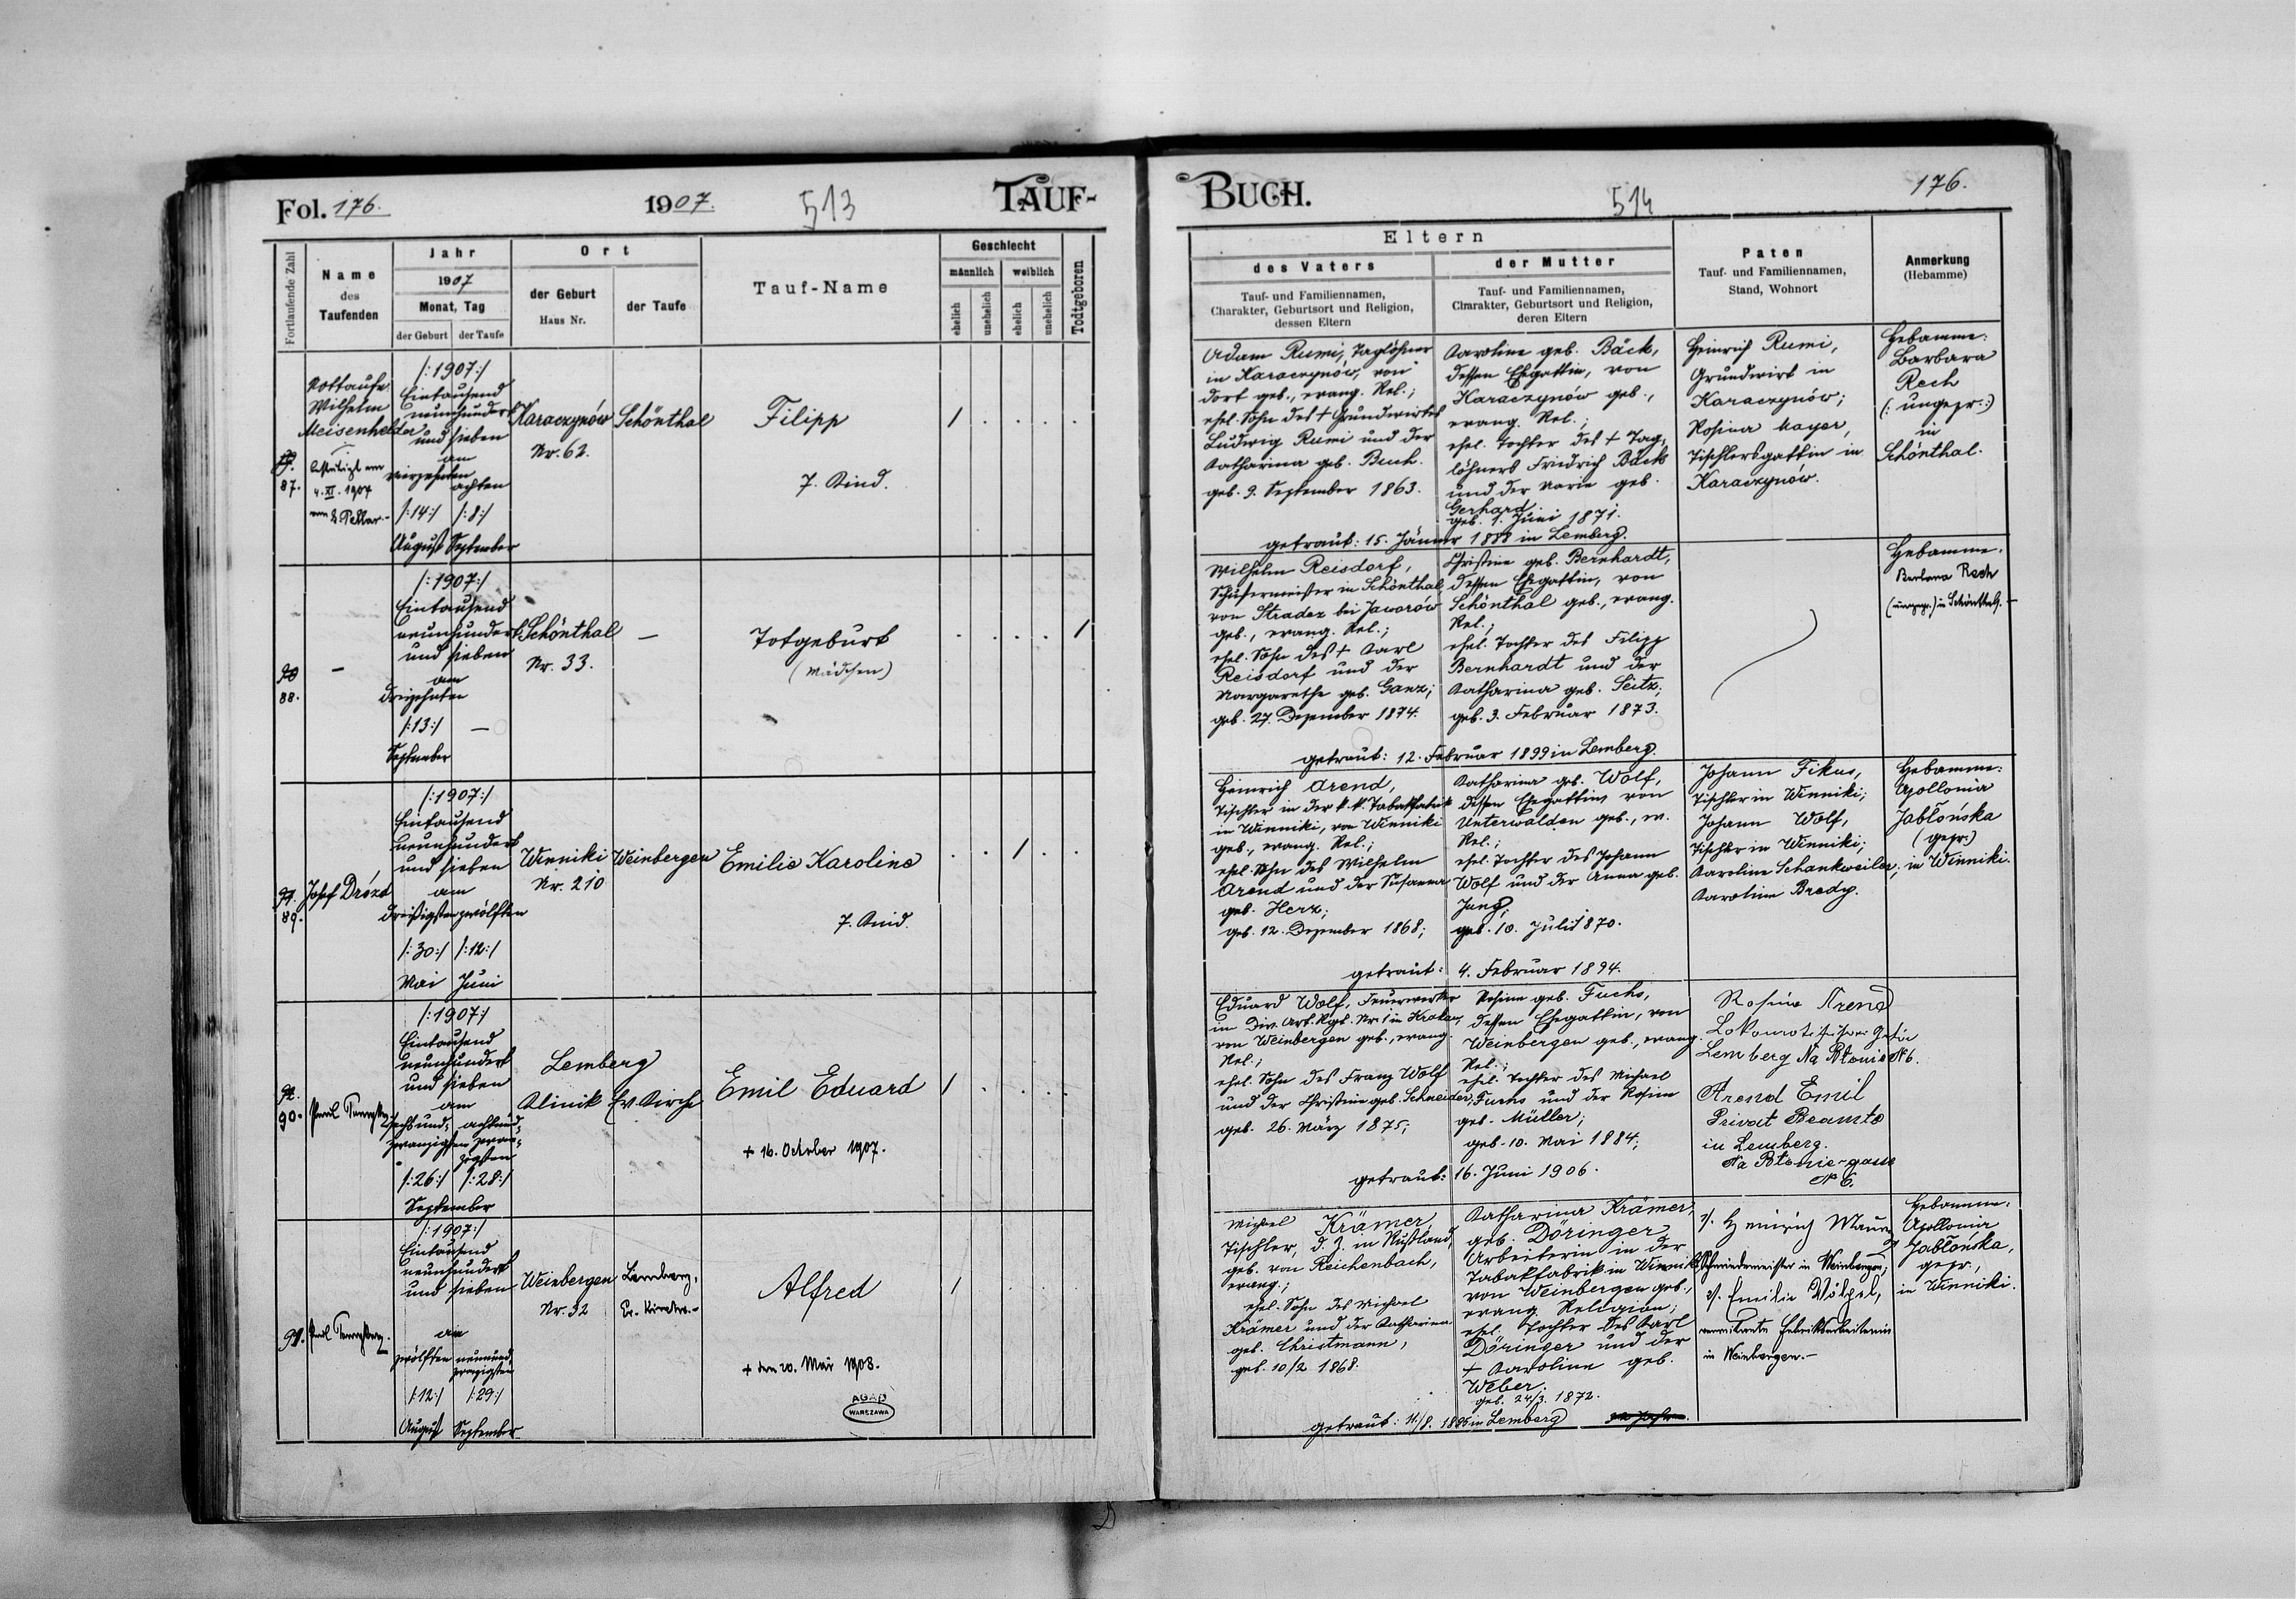 Fol. 176.
1907.
513
TAUF-
Fortlaufende Zahl
Name
des
Taufenden
Jahr
1907
Monat, Tag
der Geburt
der Taufe
Ort
der Geburt
Haus Nr.
der Taufe
Tauf-Name
Geschlecht
männlich
weiblich
ehelich
unehelich
ehelich
unehelich
Todtgeboren
87.
Nottaufe
Wilhelm
Meisenhelder
bestätigt am
4. XI. 1907
von
/:1907:/
Eintausend
neunhundert
und sieben
am
vierzehnten
achten
/:14:/ /:8:/
August September
Karaczynów
Nr. 62.
Schönthal
Filipp
7. Kind.
/ . . . .
88.
—
/:1907:/
Eintausend
neunhundert
und sieben
am
dreizehnten
/:13:/ —
September
Schönthal
Nr. 33.
—
Totgeburt
(Mädchen)
. . . . /
89.
Josef Drózd
/:1907:/
Eintausend
neunhundert
und sieben
am
dreißigsten zwölften
/:30:/ /:12:/
Mai Juni
Winniki
Nr. 210
Weinbergen
Emilie Karoline
7. Kind.
. . / . .
90.
/:1907:/
Eintausend
neunhundert
und sieben
am
sechsund- achtund-
zwanzigsten zwan-
zigsten
/:26:/ /:28:/
September
Lemberg
Klinik
Ev. Kirche
Emil Eduard
+ 16. October 1907.
/ . . . .
91.
/:1907:/
Eintausend
neunhundert
und sieben
am
zwölften neunund-
zwanzigsten
/:12:/ /:29:/
August September
Weinbergen
Nr. 32
Lemberg,
Ev. Kirche.-
Alfred
+ den 20. Mai 1908.
/ . . .
AGAD
WARSZAWA
BUCH.
514
176.
Eltern
des Vaters
Tauf- und Familiennamen,
Charakter, Geburtsort und Religion,
dessen Eltern
der Mutter
Tauf- und Familiennamen,
Charakter, Geburtsort und Religion,
deren Eltern
Paten
Tauf- und Familiennamen,
Stand, Wohnort
Anmerkung
(Hebamme)
Adam Rumi, Taglöhner
in Karaczynów, von
dort geb., evang. Rel.;
ehel. Sohn des + Grundwirtes
Ludwig Rumi und der
Katharina geb. Buch.
geb. 9. September 1863.
Karoline geb. Bäck,
dessen Ehegattin, von
Karaczynów geb.,
evang. Rel.;
ehel. Tochter des + Tag-
löhners Friedrich Bäck
und der Marie geb.
Gerhard.
geb. 1. Juni 1871.
getraut: 15. Jänner 1888 in Lemberg.
Heinrich Rumi,
Grundwirt in
Karaczynów;
Rosina Mayer,
Tischlersgattin in
Karaczynów.
Hebamme:
Barbara
Rech
(: ungepr.:)
in
Schönthal.
Wilhelm Reisdorf,
in Schönthal,
von Stradez bei Jaworów
geb., evang. Rel.;
ehel. Sohn des + Karl
Reisdorf und der
Margarethe geb. Ganz;
geb. 27. Dezember 1874.
Christine geb. Bernhardt,
dessen Ehegattin, von
Schönthal geb., evang.
Rel.;
ehel. Tochter des Filipp
Bernhardt und der
Katharina geb. Seitz;
geb. 3. Februar 1873.
getraut: 12. Februar 1899 in Lemberg.
Hebamme.
Barbara Rech
(ungepr.) in Schönthal. —
Heinrich Arend,
Tischler in der k.k. Tabakfabrik
in Winniki, von Winniki
geb., evang. Rel.;
ehel. Sohn des Wilhelm
Arend und der Susanna
geb. Herz;
geb. 12. Dezember 1868;
Katharina geb. Wolf,
dessen Ehegattin von
Unterwalden geb., ev.
Rel.;
ehel. Tochter des Johann
Wolf und der Anna geb.
Jung;
geb. 10. Juli 1870.
getraut: 4. Februar 1894.
Johann Fikus,
Tischler in Winniki;
Johann Wolf,
Tischler in Winniki;
Karoline Schankweiler;
Karoline Bredy.
Hebamme:
Apollonia
Jabłońska
(gepr.)
in Winniki.
Eduard Wolf, Feuerwerker
im Div. Art. Rgt. Nr. 1 in Krakau,
von Weinbergen geb., evang.
Rel.;
ehel. Sohn des Franz Wolf
und der Christine geb. Schneider;
geb. 26. März 1875;
Rosina geb. Fuchs,
dessen Ehegattin, von
Weinbergen geb., evang.
Rel.;
ehel. Tochter des Michael
Fuchs und der Rosina
geb. Müller;
geb. 10. Mai 1884;
getraut: 16. Juni 1906.
Rosina Arend
Lemberg Na Błonie N 6.
Arend Emil
Privat Beamte
in Lemberg.
Na Błonie-gasse
N 6.
Michael Krämer,
Tischler, d. Z. in Rußland,
geb. von Reichenbach,
evang.;
ehel. Sohn des Michael
Krämer und der Katharina
geb. Christmann,
geb. 10/2 1868.
Katharina Krämer,
geb. Döringer
Arbeiterin in der
Tabakfabrik in Winniki
von Weinbergen geb.,
evang. Religion;
ehel. Tochter des Karl
Döringer und der
+ Karoline geb.
Weber;
geb. 24/3. 1872.
getraut: 11/8. 1895 in Lemberg
1/. Heinrich Maurer
Schmiedemeister in Weinbergen;
2/. Emilie Wölpel,
Fabriksarbeiterin
in Weinbergen.-
Hebamme:
Apollonia
Jabłońska,
gepr.,
in Winniki.